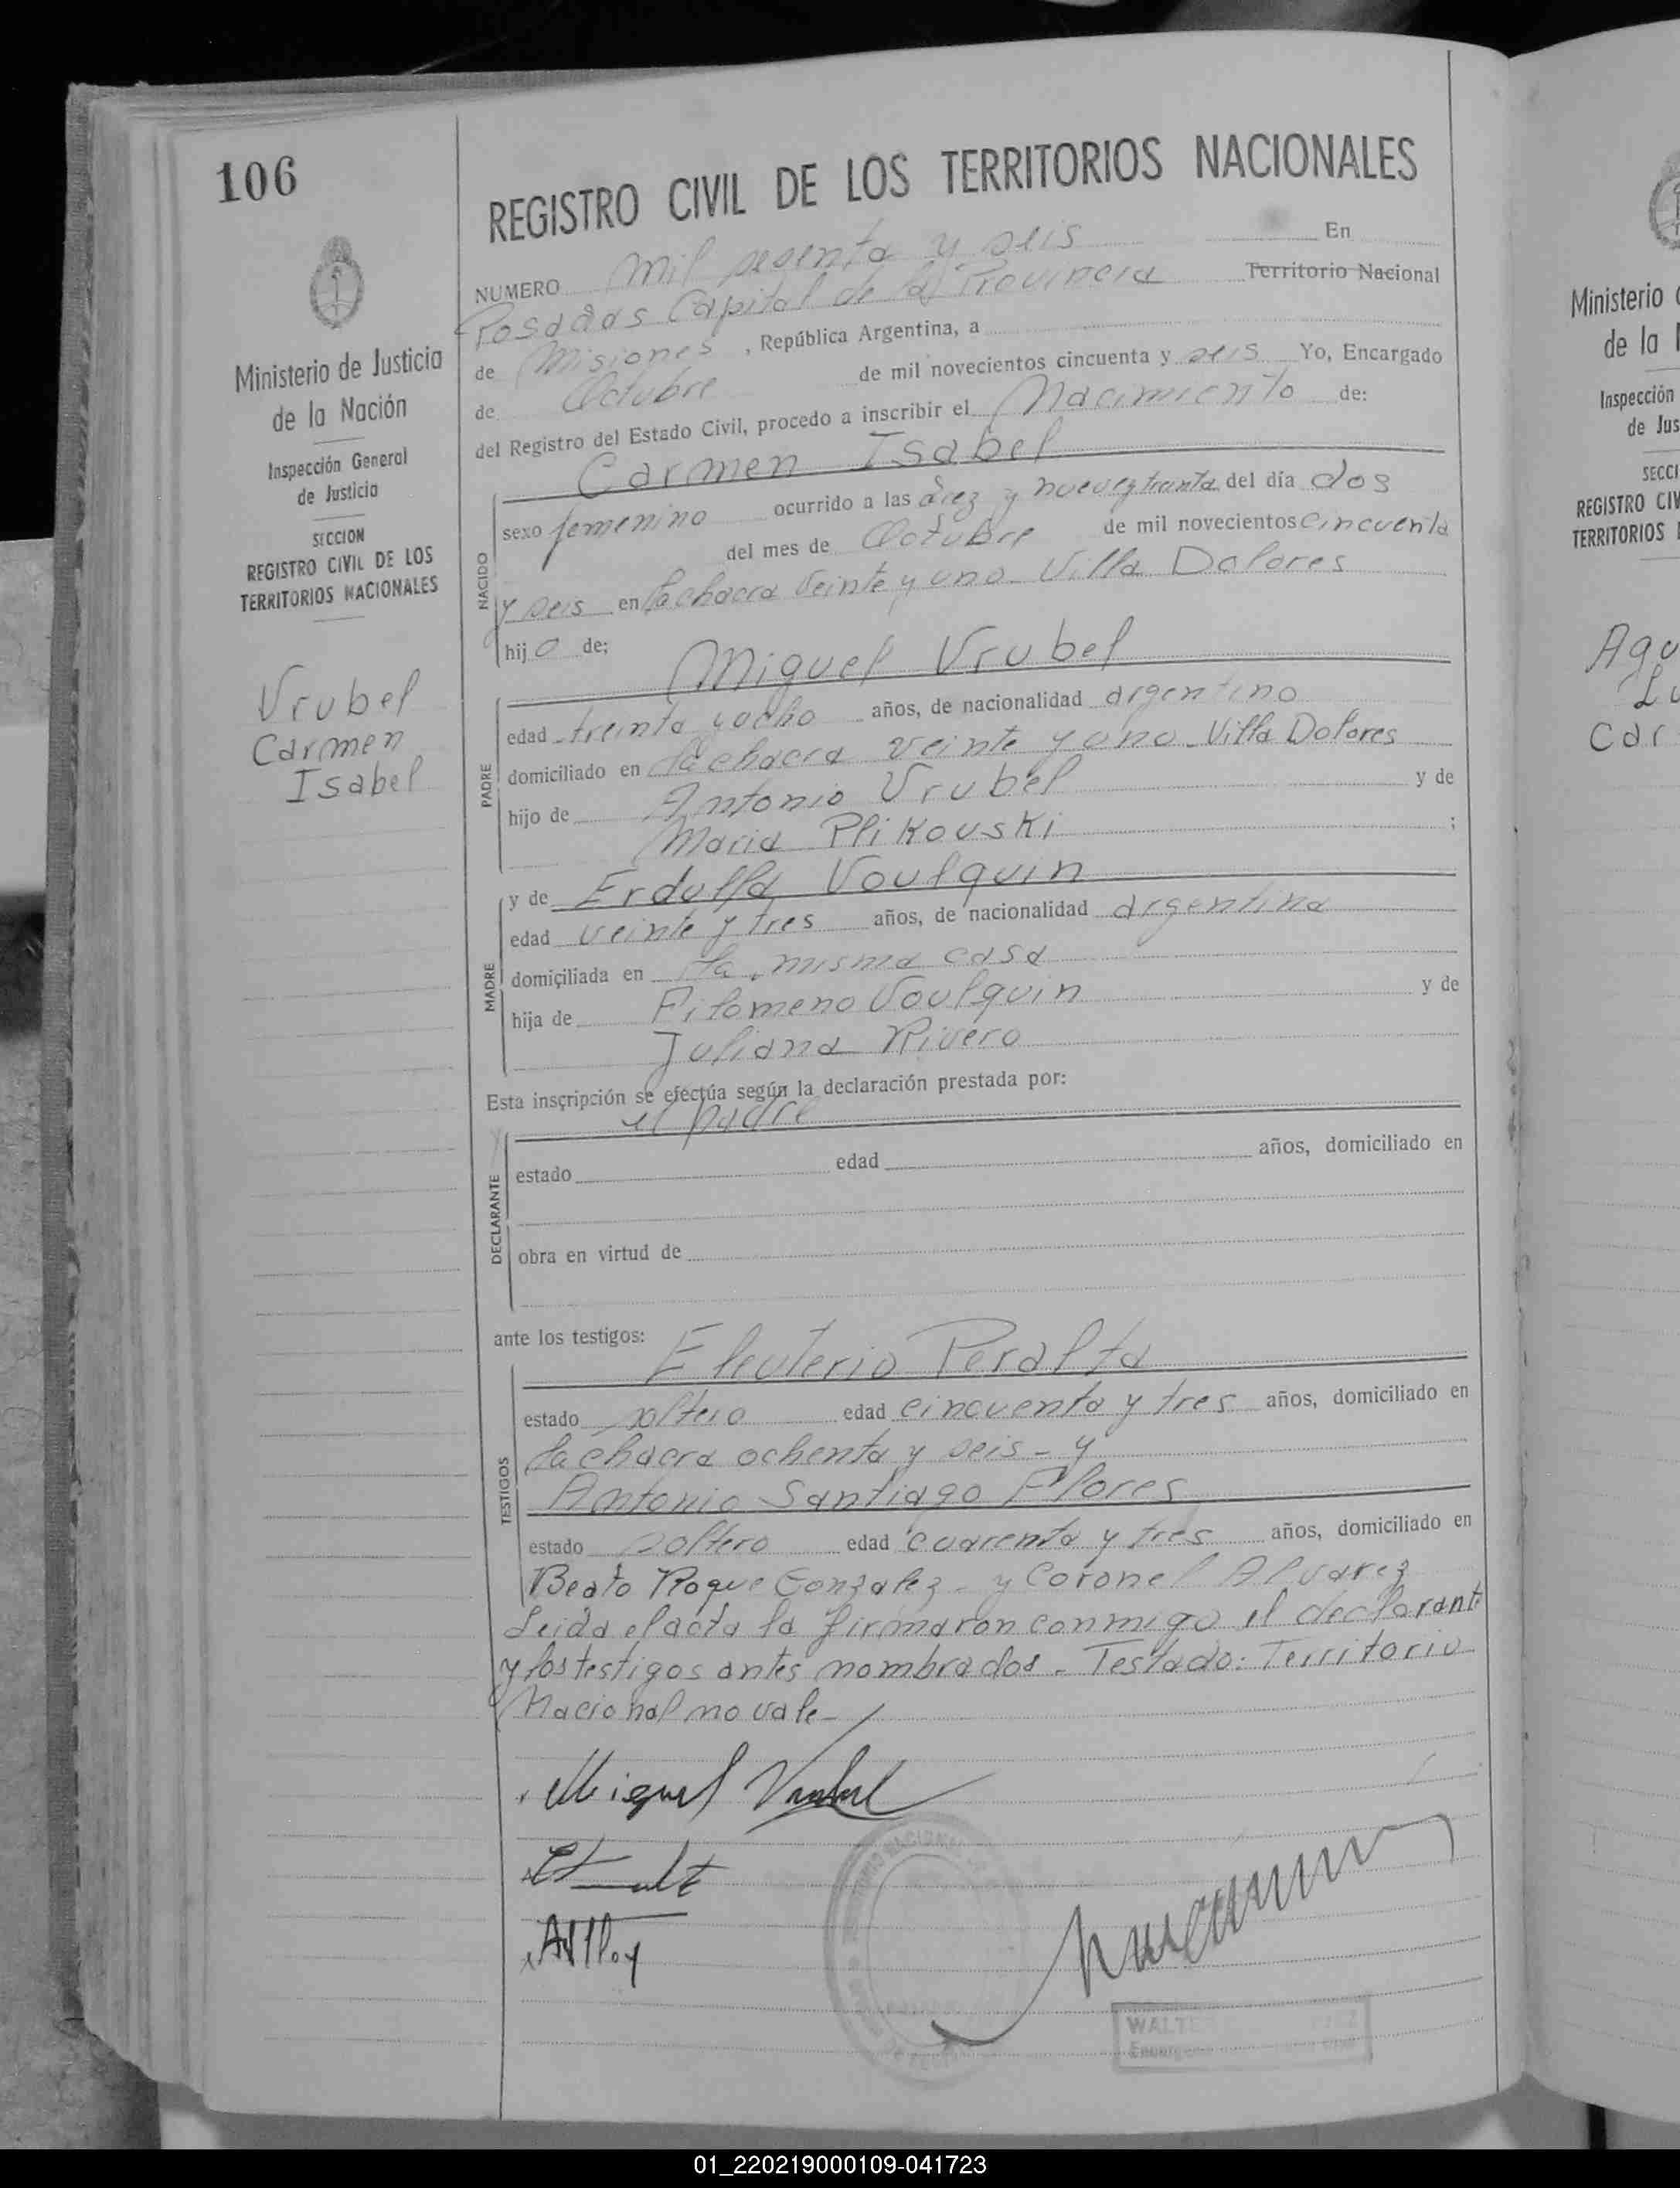 106
REGISTRO CIVIL DE LOS TERRITORIOS NACIONALES
NUMERO Mil sesenta y seis En
Posadas Capital de la Provincia Territorio Nacional
de Misiones, República Argentina, a
de Octubre de mil novecientos cincuenta y seis Yo, Encargado
del Registro del Estado Civil, procedo a inscribir el Nacimiento de:
Carmen Isabel
sexo femenino ocurrido a las diez y nueve y treinta del día dos
del mes de Octubre de mil novecientos cincuenta
y seis en la chacra veinte y uno Villa Dolores
hijo de;
Miguel Vrubel
edad treinta y ocho años, de nacionalidad argentino
domiciliado en la chacra veinte y uno - Villa Dolores
hijo de Antonio Vrubel y de
Maria Plikouski ;
y de Erdulfa Voulquin
edad veinte y tres años, de nacionalidad argentina
domiciliada en la misma casa
hija de Filomeno Voulquin y de
Juliana Rivero
Esta inscripción se efectúa según la declaración prestada por:
el padre
estado edad años, domiciliado en
obra en virtud de
ante los testigos:
Eleuterio Peralta
estado soltero edad cincuenta y tres años, domiciliado en
la chacra ochenta y seis - y
Antonio Santiago Flores
estado soltero edad cuarenta y tres años, domiciliado en
Beato Roque Gonzalez - y Coronel Alvarez
Leida el acta la firmaron conmigo el declarante
y los testigos antes nombrados - Testado: Territorio
Nacional no vale -
Miguel Vrubel
WALTE
NACIDO
PADRE
MADRE
DECLARANTE
TESTIGOS
Ministerio de Justicia
de la Nación
Inspección General
de Justicia
SECCION
REGISTRO CIVIL DE LOS
TERRITORIOS NACIONALES
Vrubel
Carmen
Isabel
Ministerio
de la
Inspección
de Jus
SECCI
REGISTRO CIV
TERRITORIOS
Agu
Lu
Car
01_220219000109-041723